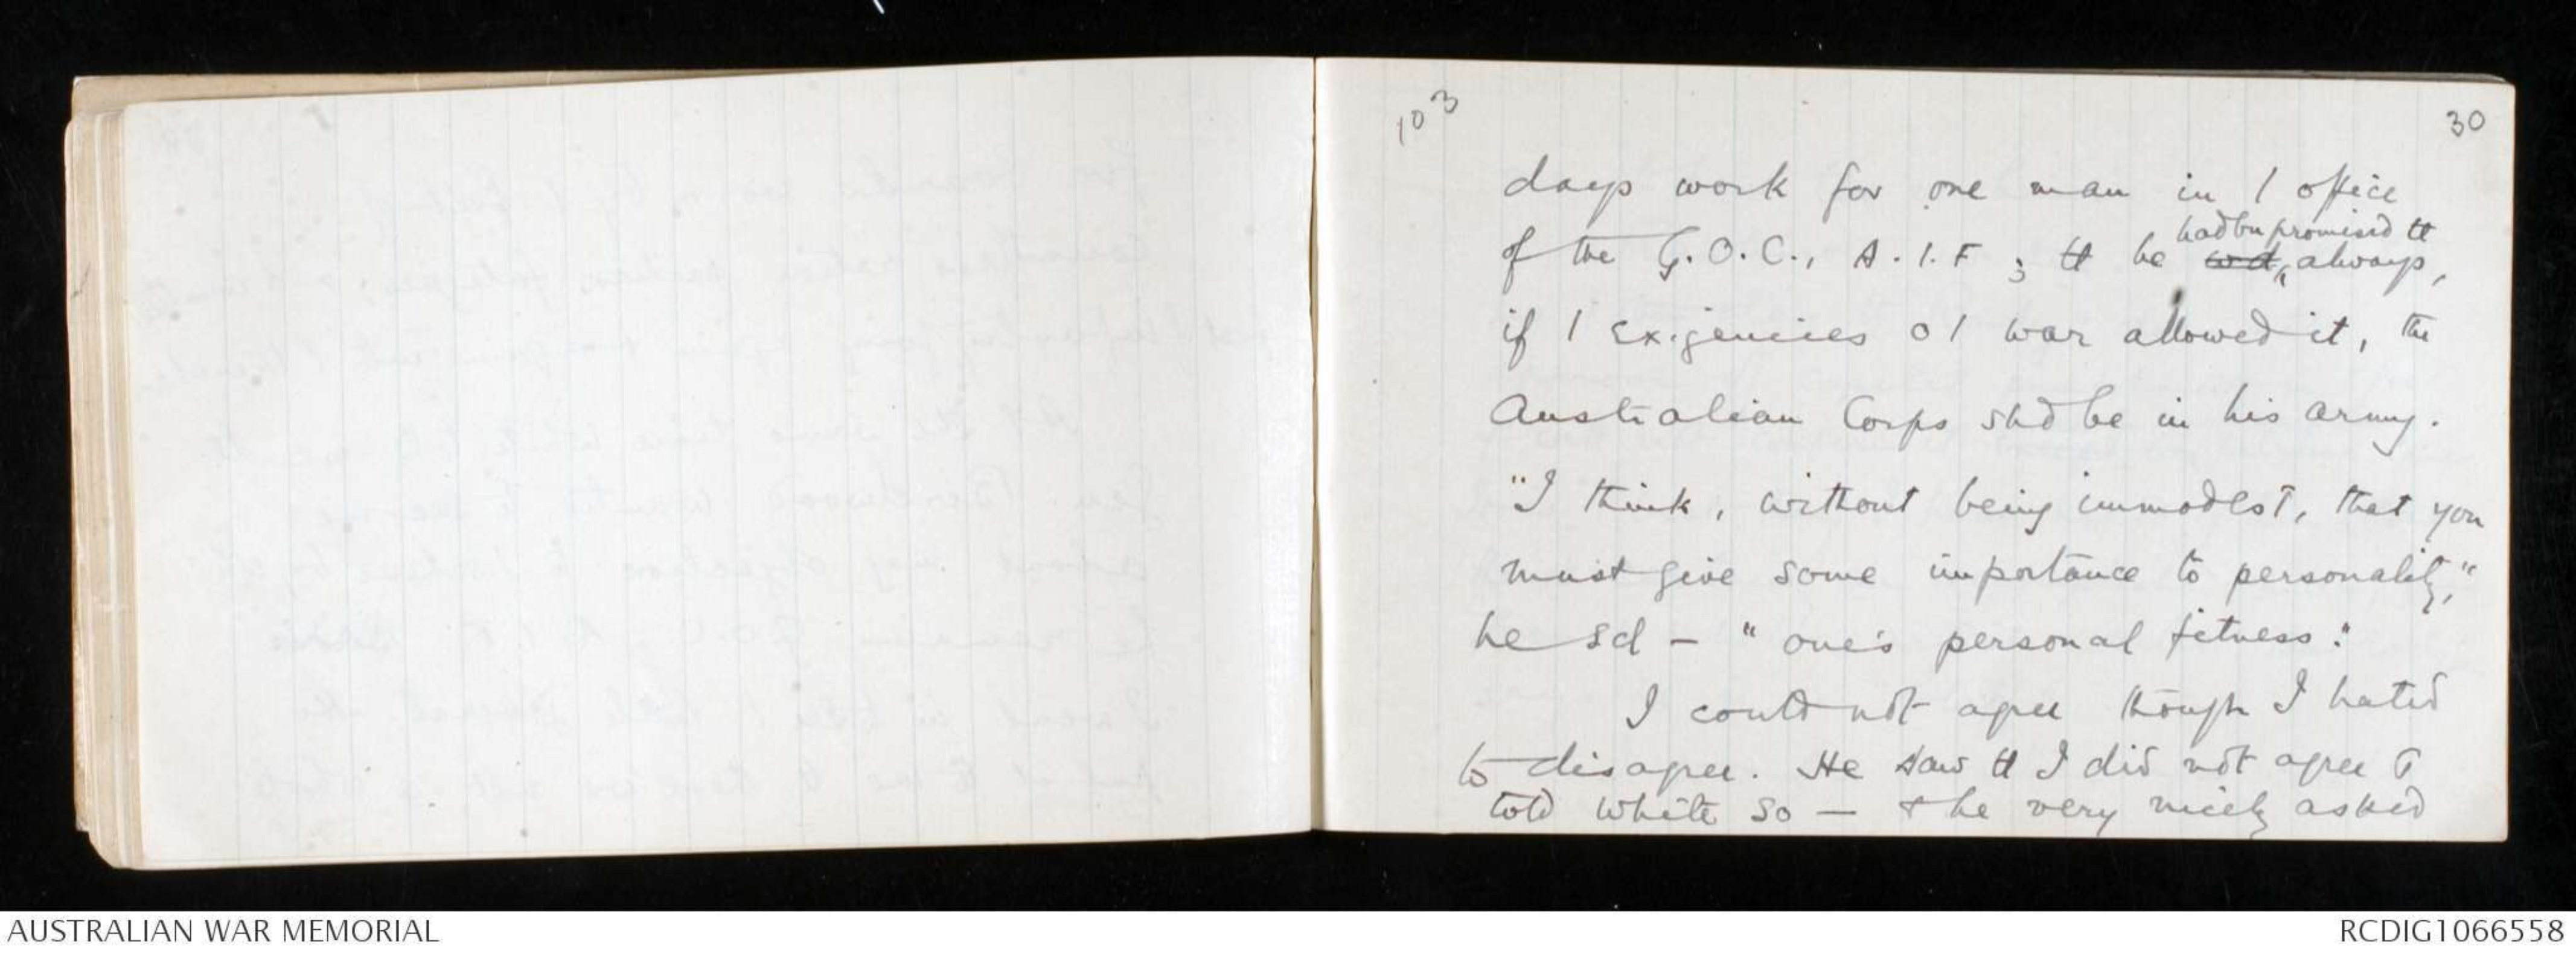 103
30
days work for one man in / office
had bn promised tt
of the G.O.C., A.I.F; tt he wd, always,
if / exigencies o/ war allowed it, the
Australian Corps shd be in his army.
"I think, without being immodest, that you
must give some importance to personality,"
he sd - "one's personal fitness."
I could not agree though I hated
to disagree. He saw tt I did not agree &
told White so - & he very nicely asked
AUSTRALIAN WAR MEMORIAL
RCDIG1066558